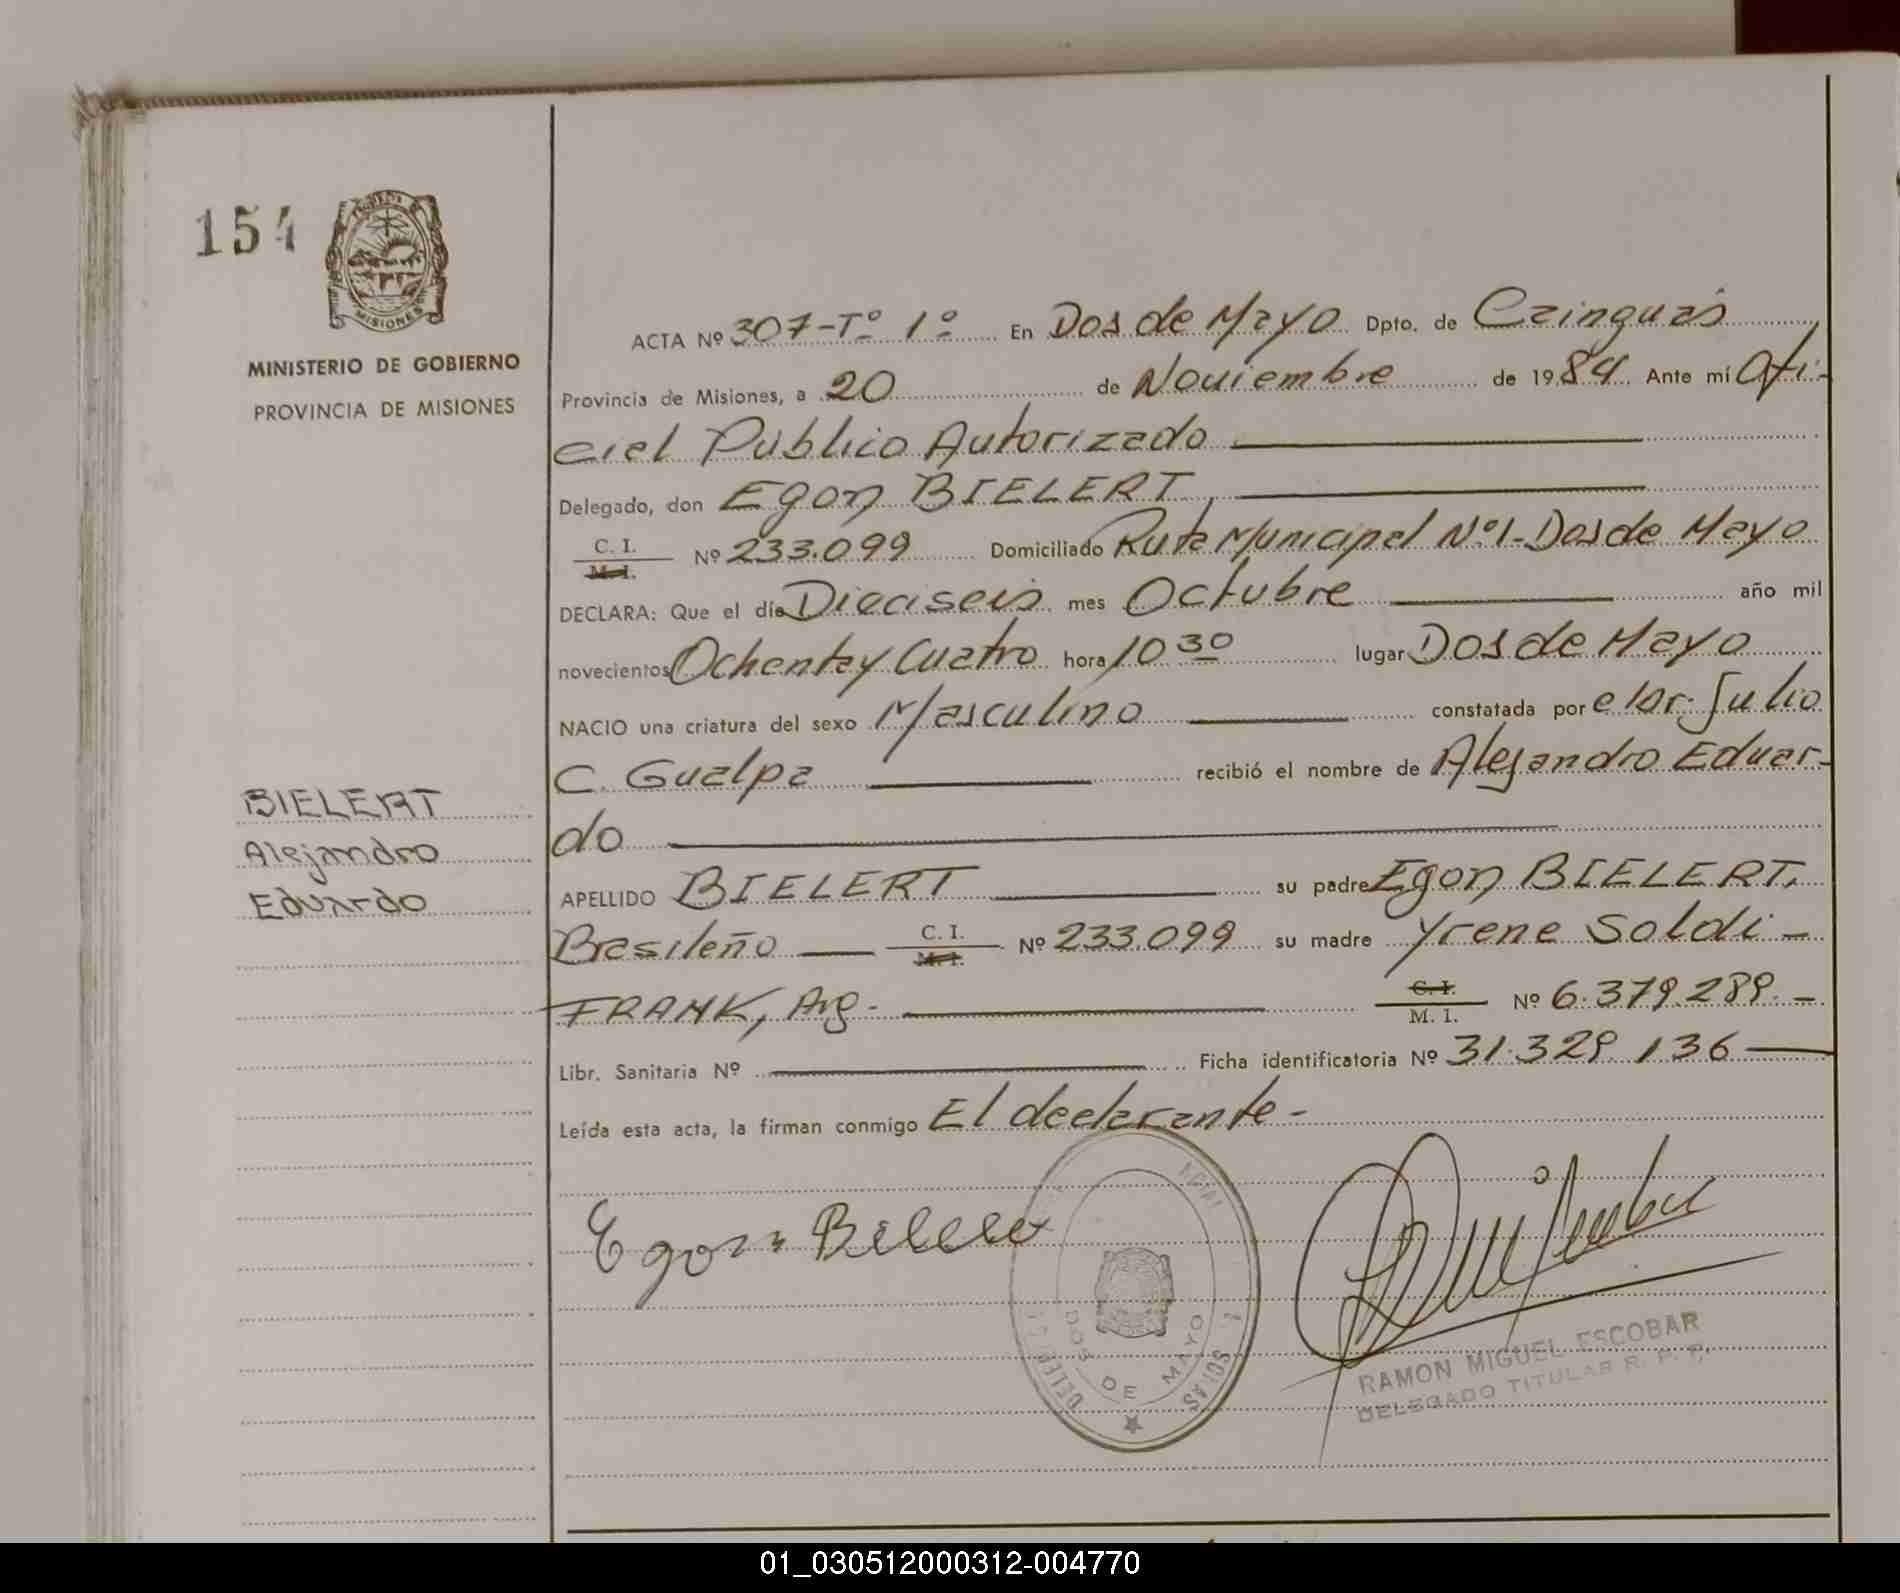 154
MISIONES
MINISTERIO DE GOBIERNO
PROVINCIA DE MISIONES
BIELERT
Alejandro
Eduardo
ACTA Nº 307-Tº 1º En Dos de Mayo Dpto. de Cainguás
Provincia de Misiones, a 20 de Noviembre de 1984 Ante mí Ofi-
cial Público Autorizado
Delegado, don Egon BIELERT,
C. I.
M. I. Nº 233.099 Domiciliado Ruta Municipal Nº1-Dos de Mayo
DECLARA: Que el día Dieciseis mes Octubre año mil
novecientos Ochenta y Cuatro hora 10 30 lugar Dos de Mayo
NACIO una criatura del sexo Masculino constatada por el Dr. Julio
C. Gualpa recibió el nombre de Alejandro Eduar-
do
APELLIDO BIELERT su padre Egon BIELERT,
Brasileño C. I. M. I. Nº 233.099 su madre Yrene Soldi-
FRANK, Arg. C. I. M. I. Nº 6.379.289.-
Libr. Sanitaria Nº Ficha identificatoria Nº 31.329 136
Leída esta acta, la firman conmigo El declarante-
Egon
DOS DE MAYO
RAMON MIGUEL ESCOBAR
DELEGADO TITULAR R. P. P.
01_030512000312-004770